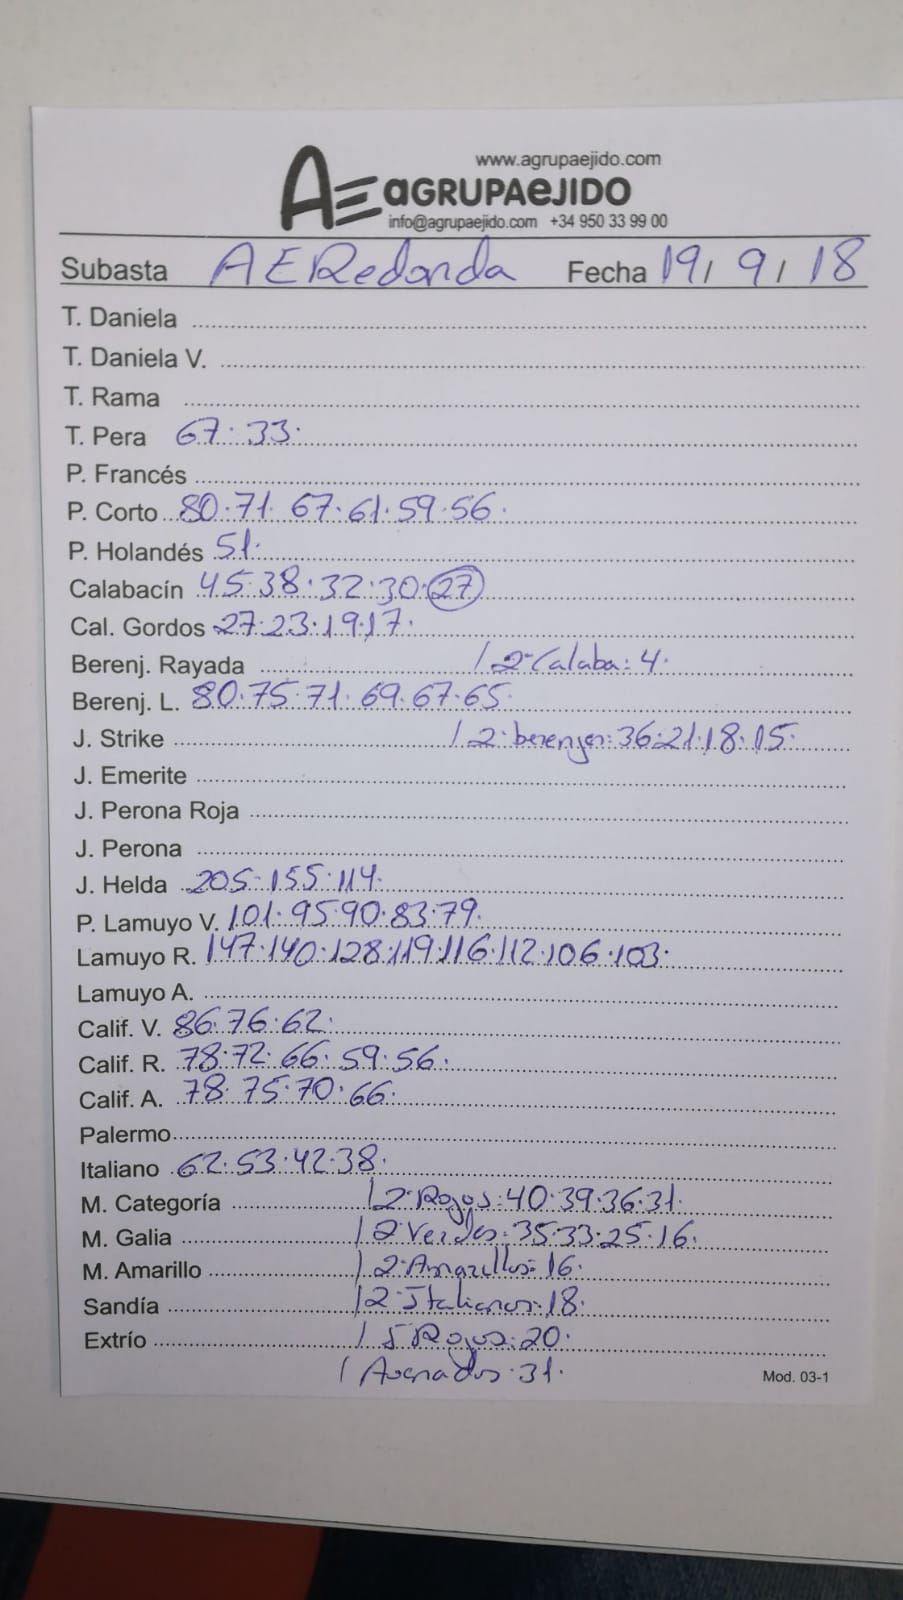 www.agrupaejido.com
AE aGRUPAeJIDO
info@agrupaejido.com +34 950 33 99 00
Subasta AERedonda Fecha 19/ 9/ 18
T. Daniela
T. Daniela V.
T. Rama
T. Pera 67. 33.
P. Francés
P. Corto 80.71. 67.61.59.56.
P. Holandés 51.
Calabacín 45.38.32.30.27
Cal. Gordos 27.23.19.17.
Berenj. Rayada / 2ºCalaba: 4.
Berenj. L. 80.75.71. 69.67.65.
J. Strike / 2º berenjen: 36.21.18.15.
J. Emerite
J. Perona Roja
J. Perona
J. Helda 205.155.114.
P. Lamuyo V. 101. 95.90.83.79.
Lamuyo R. 147.140.128.119.116.112.106.103.
Lamuyo A.
Calif. V. 86.76.62.
Calif. R. 78.72.66.59.56.
Calif. A. 78.75.70.66.
Palermo
Italiano 62.53.42.38.
M. Categoría / 2º Rojos: 40.39.36.31.
M. Galia / 2º Verdes: 35.33.25.16.
M. Amarillo / 2º Amarillos: 16.
Sandía / 2º Italianos: 18.
Extrío / 5 Rojos: 20.
/ Asenados. 31.
Mod. 03-1